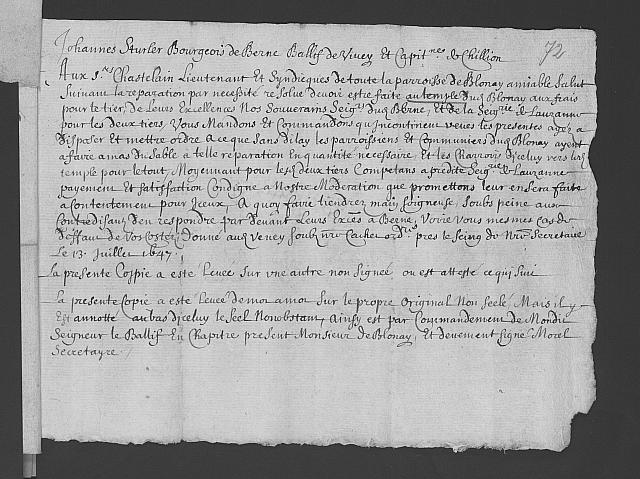 72
Johannes Sturler Bourgeois de Berne Ballif de Vivey et Capit.nes de Chillion
Aux S.rs Chastelain Lieutenant et Syndicques de toute la parroisse de Blonay amiable Salut
Suivant la reparation par necessité resolue devoir estre faite au temple dud. Blonay aux frais
pour le tier, de Leurs Excellences Nos Souverains Seig.rs dud. Berne, et de la Seig.rie de Lauzanne
pour les deux tiers, Vous Mandons et Commandons qu'incontinent veues les presentes ayez a
disposer et mettre ordre a ce que sans dilay les parroissiens et Communiers dud. Blonay ayent
a faire amas du Sable a telle reparation En quantité necessaire, et les Charroir diceluy vers led.
temple pour le tout, Moyennant pour les deux tiers Competans a predite Seig.rie de Lauzanne
payement et Satisfaction Condigne a Nostre Moderation que promettons leur en sera faite
a Contentement pour Iceux, A quoy faire tiendrez main Soigneuse, Soubs peine aux
Contredisans d'en respondre par devant Leurs Exces a Berne, Voire Vous mesmes cas de
deffaut de Vos Costez, Donné aud. Vevey soubz n.re Cachet ord.re pres le seing de N.re Secretaire
Le 13. Juillet 1647.
La presente Coppie a esté Levée sur une autre non signée ou est attesté ce qui suit
La presente Copie a esté Levée de mot a mot Sur le propre Original Non Seelé Mais il y
Est annotté au bas diceluy le Seel Nonobstant, Ainsy est par Commandement de Mondit
Seigneur le Ballif En present Monsieur de Blonay, Et devement Signé Morel
Secretayre